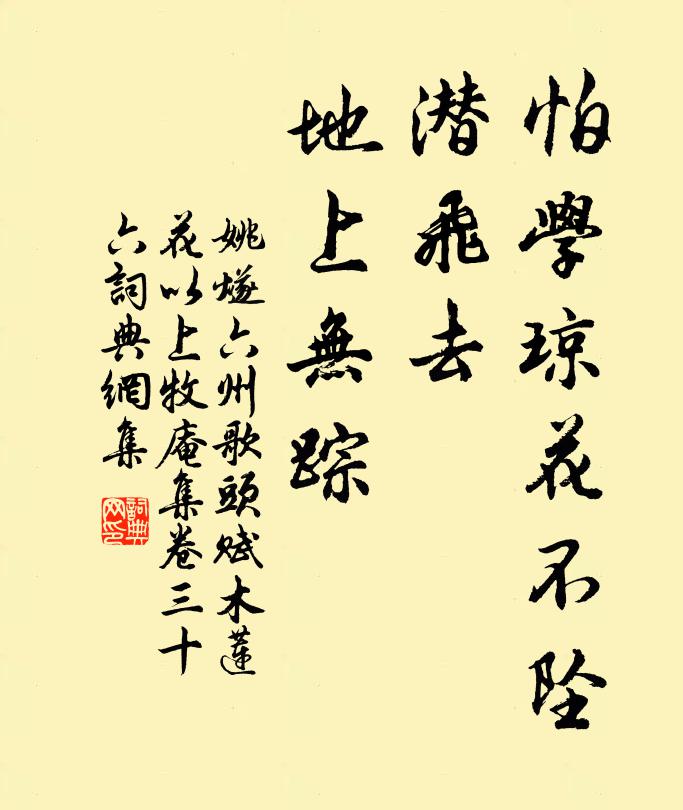 怕學琼花不坠
潜飛去
地上無踪
姚燧六州歌頭赋木蓮
花以上牧庵集卷三十
六詞典網集
詞典
网印